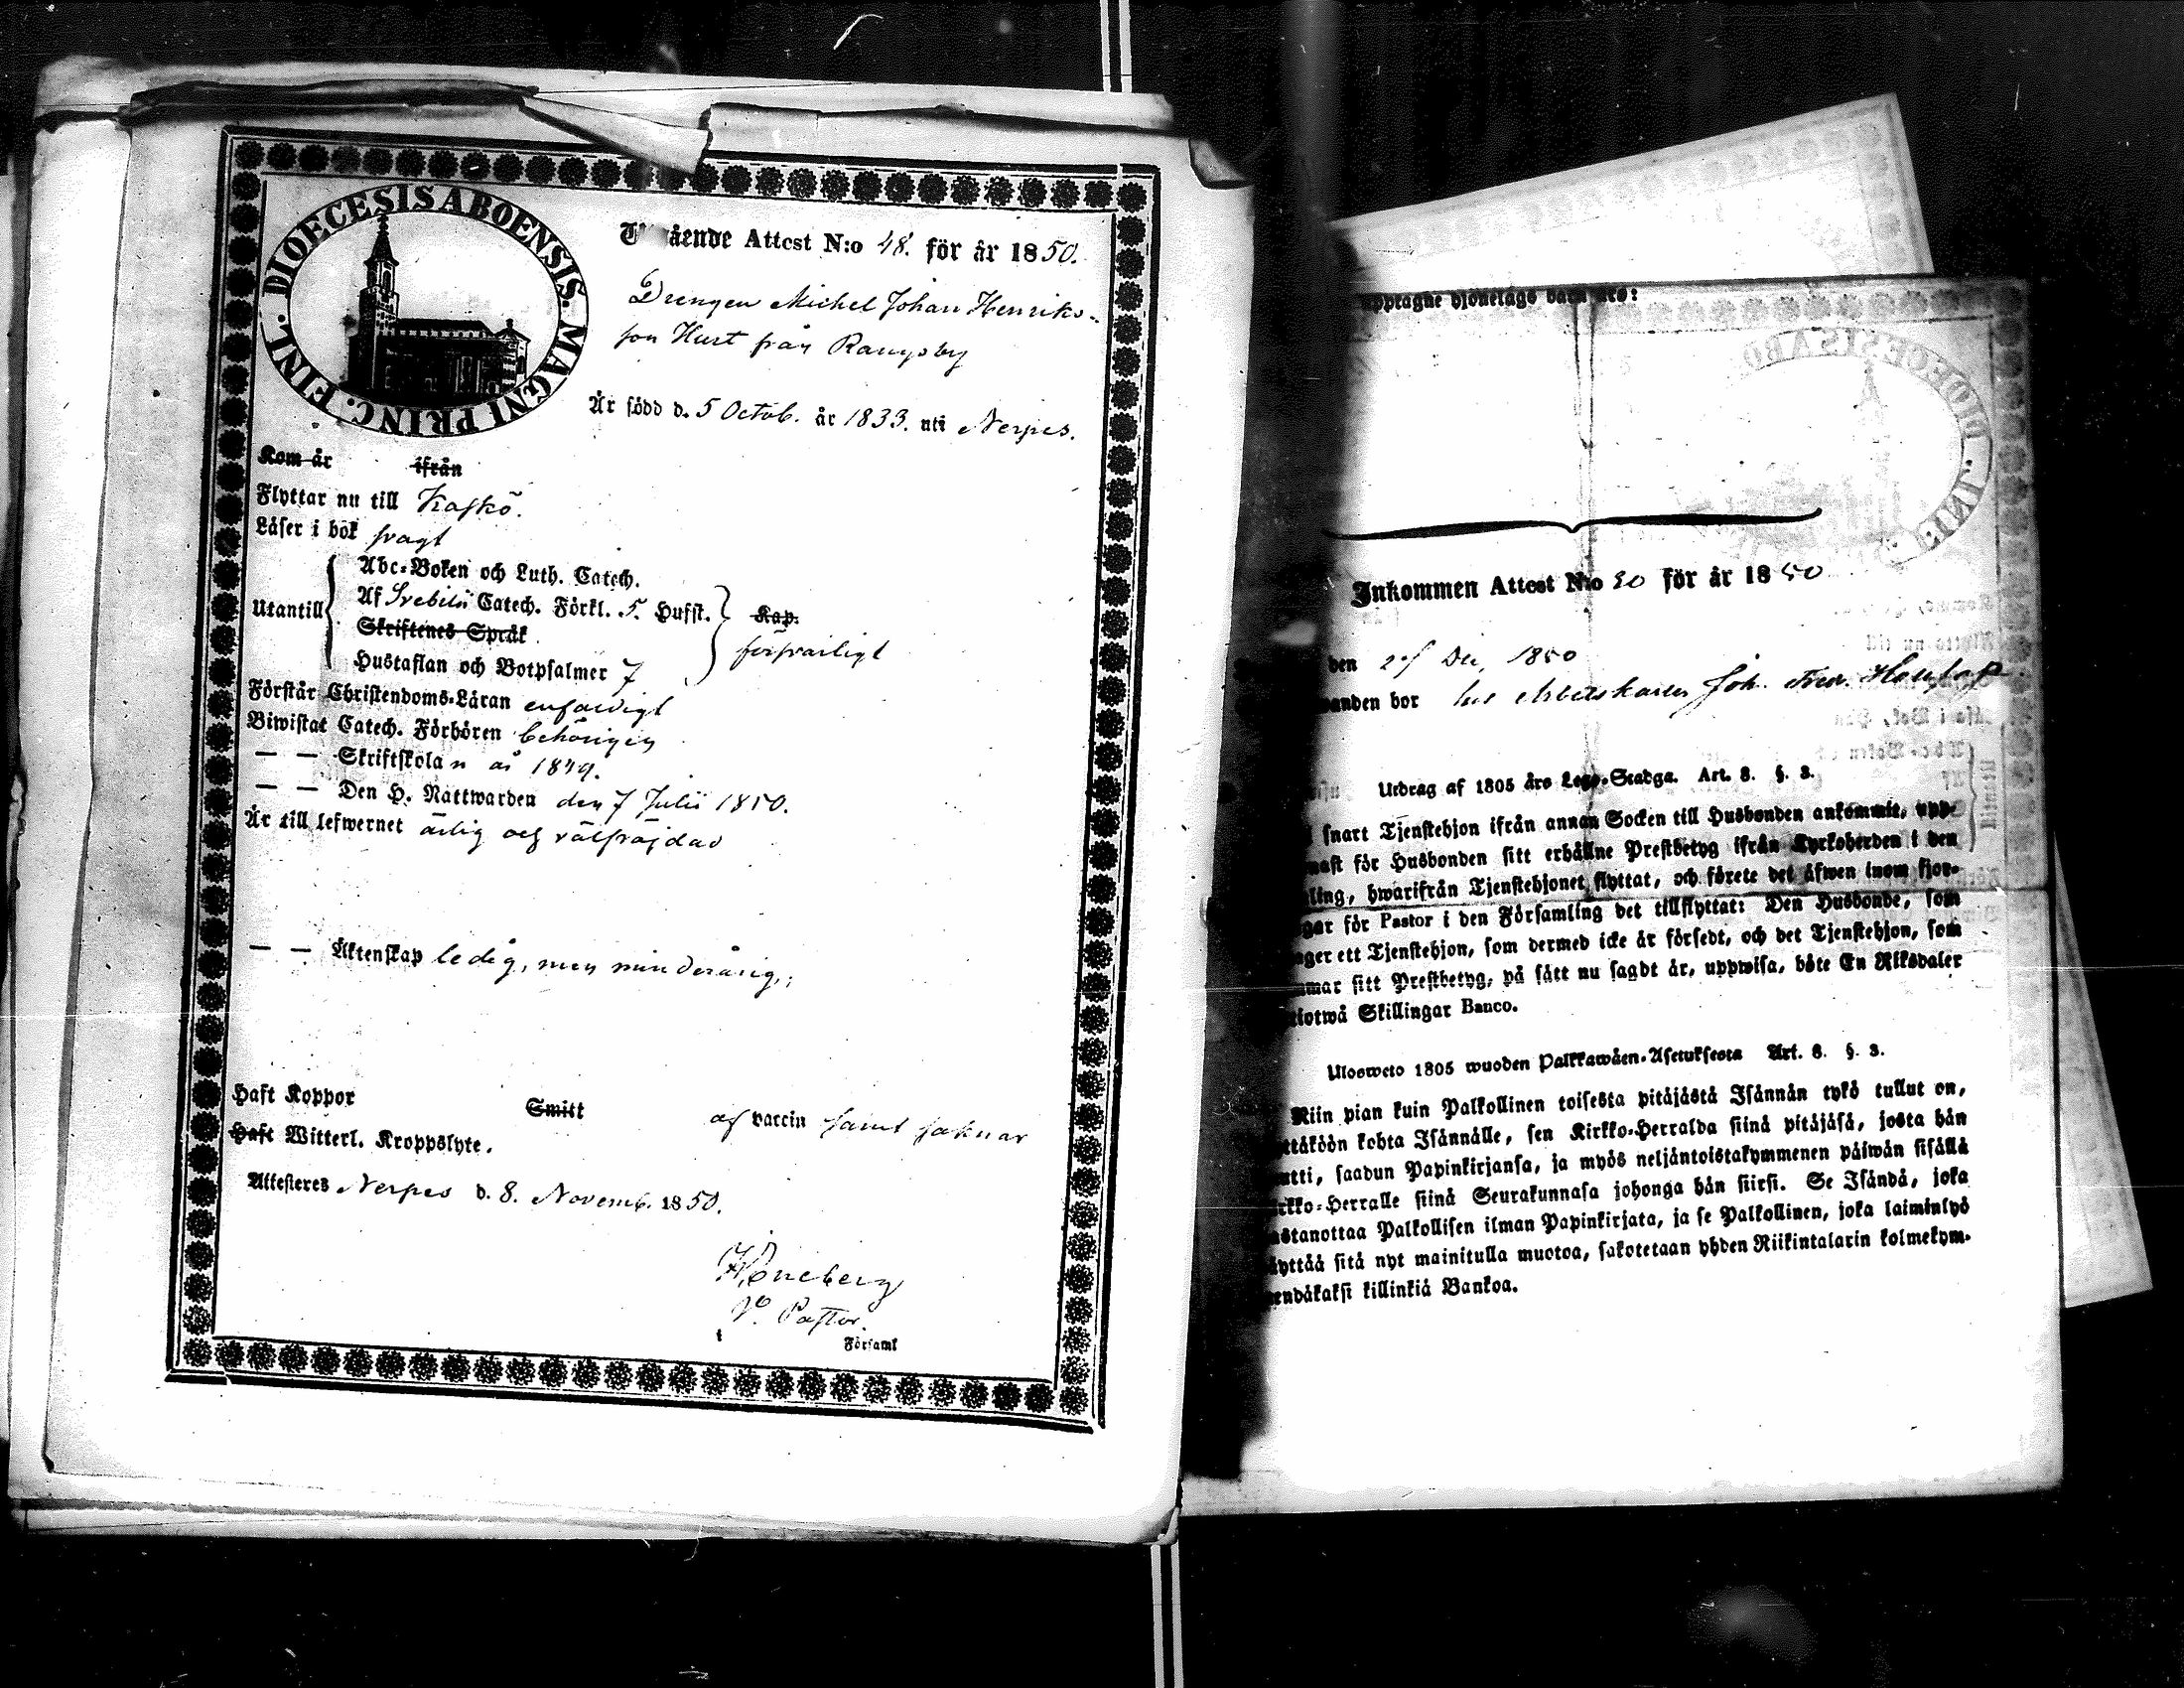 DIOECESIS ABOENSIS. MAGNI PRINC. FINL.
Utgående Attest N:o 48. för år 1850.
Drengen Michel Johan Henriks-
son Hurt från Rangsby
Är född d. 5 Octob. år 1833. uti Nerpes.
Kom år ifrån
Flyttar nu till Kaskö.
Läser i bok svagt
Utantill
Abc-Boken och Luth. Catech.
Af Svebilii Catech. Förkl. 5. Hufst.
Skriftenes Språk
Hustaflan och Botpsalmer 7
Kap.
försvarligt
Förstår Christendoms-Läran enfaldigt
Biwistat Catech. Förhören behörigen
— — Skriftskolan år 1849.
— — Den H. Nattwarden den 7 Julii 1850.
Är till lefwernet ärlig och välfräjdad
— — Äktenskap ledig, men minderårig.
Haft Koppor Smitt af vaccin samt saknar
Haft Witterl. Kroppslyte.
Attesteres Nerpes d. 8. Novemb. 1850.
V. Pastor.
Församl
upptagne hjonelags barn äro:
Inkommen Attest N:o 20 för år 1850
den Dec, 1850
anden bor hos Arbetskarlen Joh. Fred.
Utdrag af 1805 års Lego-Stadga. Art. 8. §. 3.
snart Tjenstehjon ifrån annan Socken till Husbonden ankommit, upp-
mast för Husbonden sitt erhållne Prestbetyg ifrån Kyrkoherden i den
ling, hwarifrån Tjenstehjonet flyttat, och förete det äfwen inom fjor-
gar för Pastor i den Församling det tillflyttat: Den Husbonde, som
ager ett Tjenstehjon, som dermed icke är försedt, och det Tjenstehjon, som
mmar sitt Prestbetyg, på sätt nu sagdt är, uppwisa, böte En Riksdaler
tiotwå Skillingar Banco.
Ulosweto 1805 wuoden Palkkawäen-Asetuksesta Art. 8. §. 3.
Niin pian kuin Palkollinen toisesta pitäjästä Isännän tykö tullut on,
ttäköön kohta Isännälle, sen Kirkko-Herralda siinä pitäjäsä, josta hän
utti, saadun Papinkirjansa, ja myös neljäntoistakymmenen päiwän sisällä
rkko-Herralle siinä Seurakunnasa johonga hän siirsi. Se Isändä, joka
astanottaa Palkollisen ilman Papinkirjata, ja se Palkollinen, joka laiminlyö
äyttää sitä nyt mainitulla muotoa, sakotetaan yhden Riikintalarin kolmekym-
endäkaksi killinkiä Bankoa.